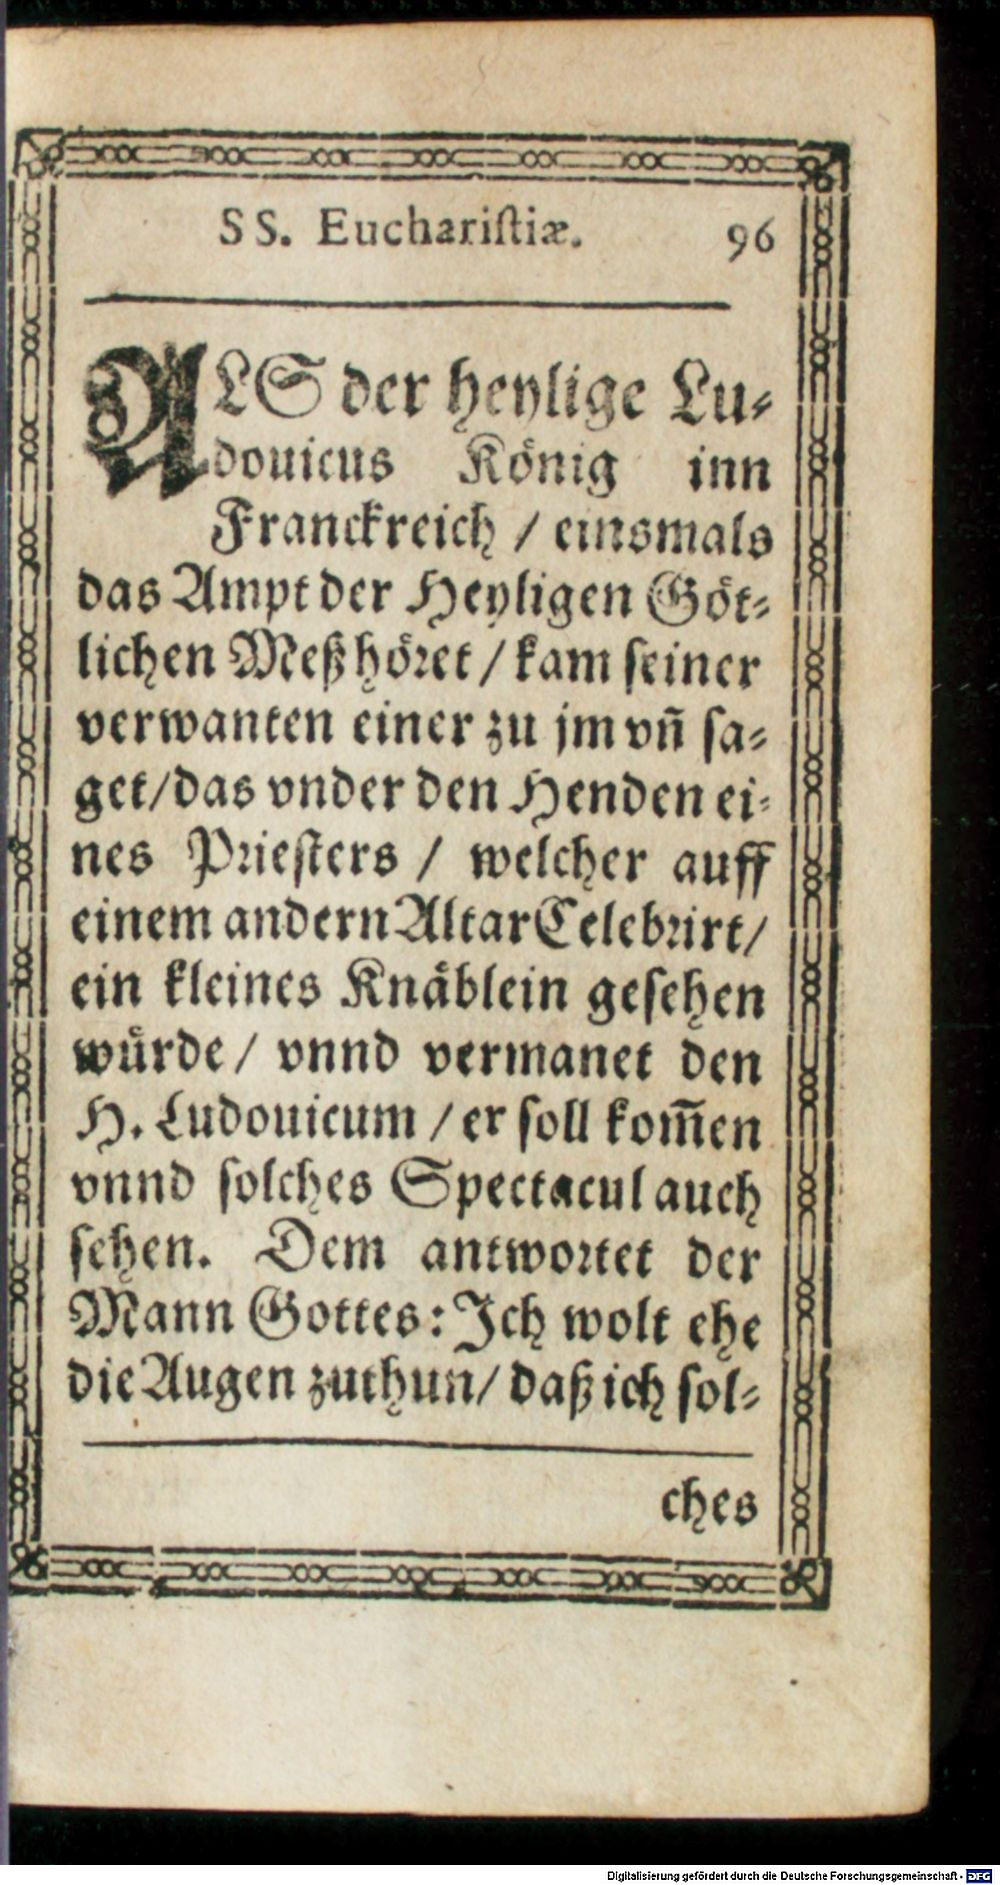 SS. Euchariſtiæ. 96
ALS der heylige Lu⸗
douicus König inn
Franckreich / einsmals
das Ampt der Heyligen Göt⸗
lichen Meß höꝛet / kam ſeiner
verwanten einer zu jm vn̄ ſa⸗
get / das vnder den Henden ei⸗
nes Pꝛieſters / welcher auff
einem andern Altar Celebꝛirt /
ein kleines Knäblein geſehen
würde / vnnd vermanet den
H. Ludouicum / er ſoll kom̄en
vnnd ſolches Spectacul auch
ſehen. Dem antwoꝛtet der
Mann Gottes: Ich wolt ehe
die Augen zuthun / daß ich ſol⸗
ches
Digitalisierung gefördert durch die Deutsche Forschungsgemeinschaft - DFG